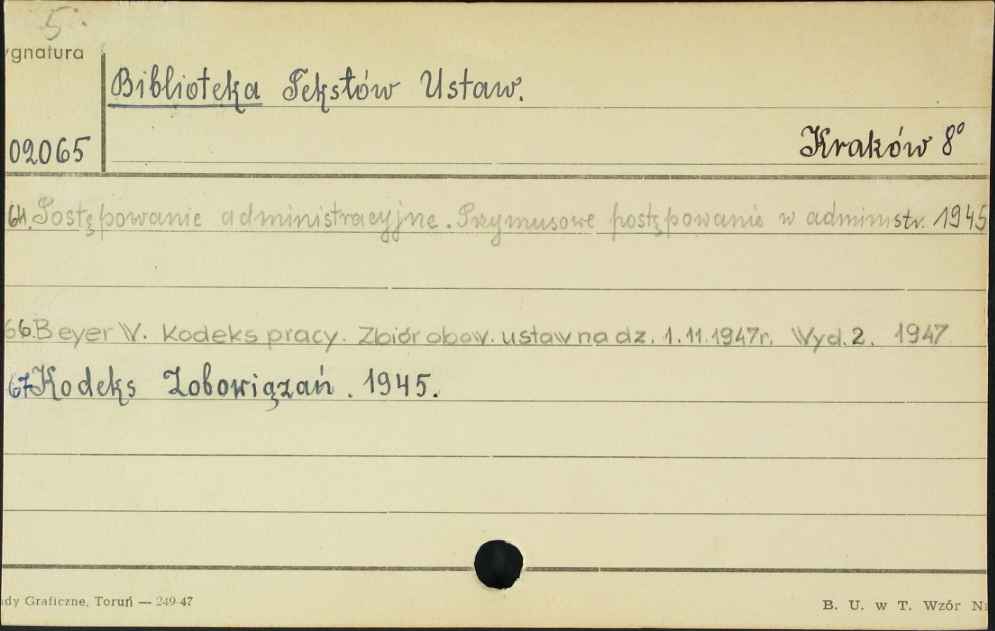 5.
ygnatura
Biblioteka Tekstów Ustaw.
02065
Kraków 8°
64. Postępowanie administracyjne. Przymusowe postępowanie w administr. 1945
66. Beyer W. Kodeks pracy. Zbiór obow. ustaw na dz. 1.11.1947r. Wyd. 2. 1947
67 Kodeks Zobowiązań. 1945.
ady Graficzne, Toruń — 249-47
B. U. w T. Wzór Nr